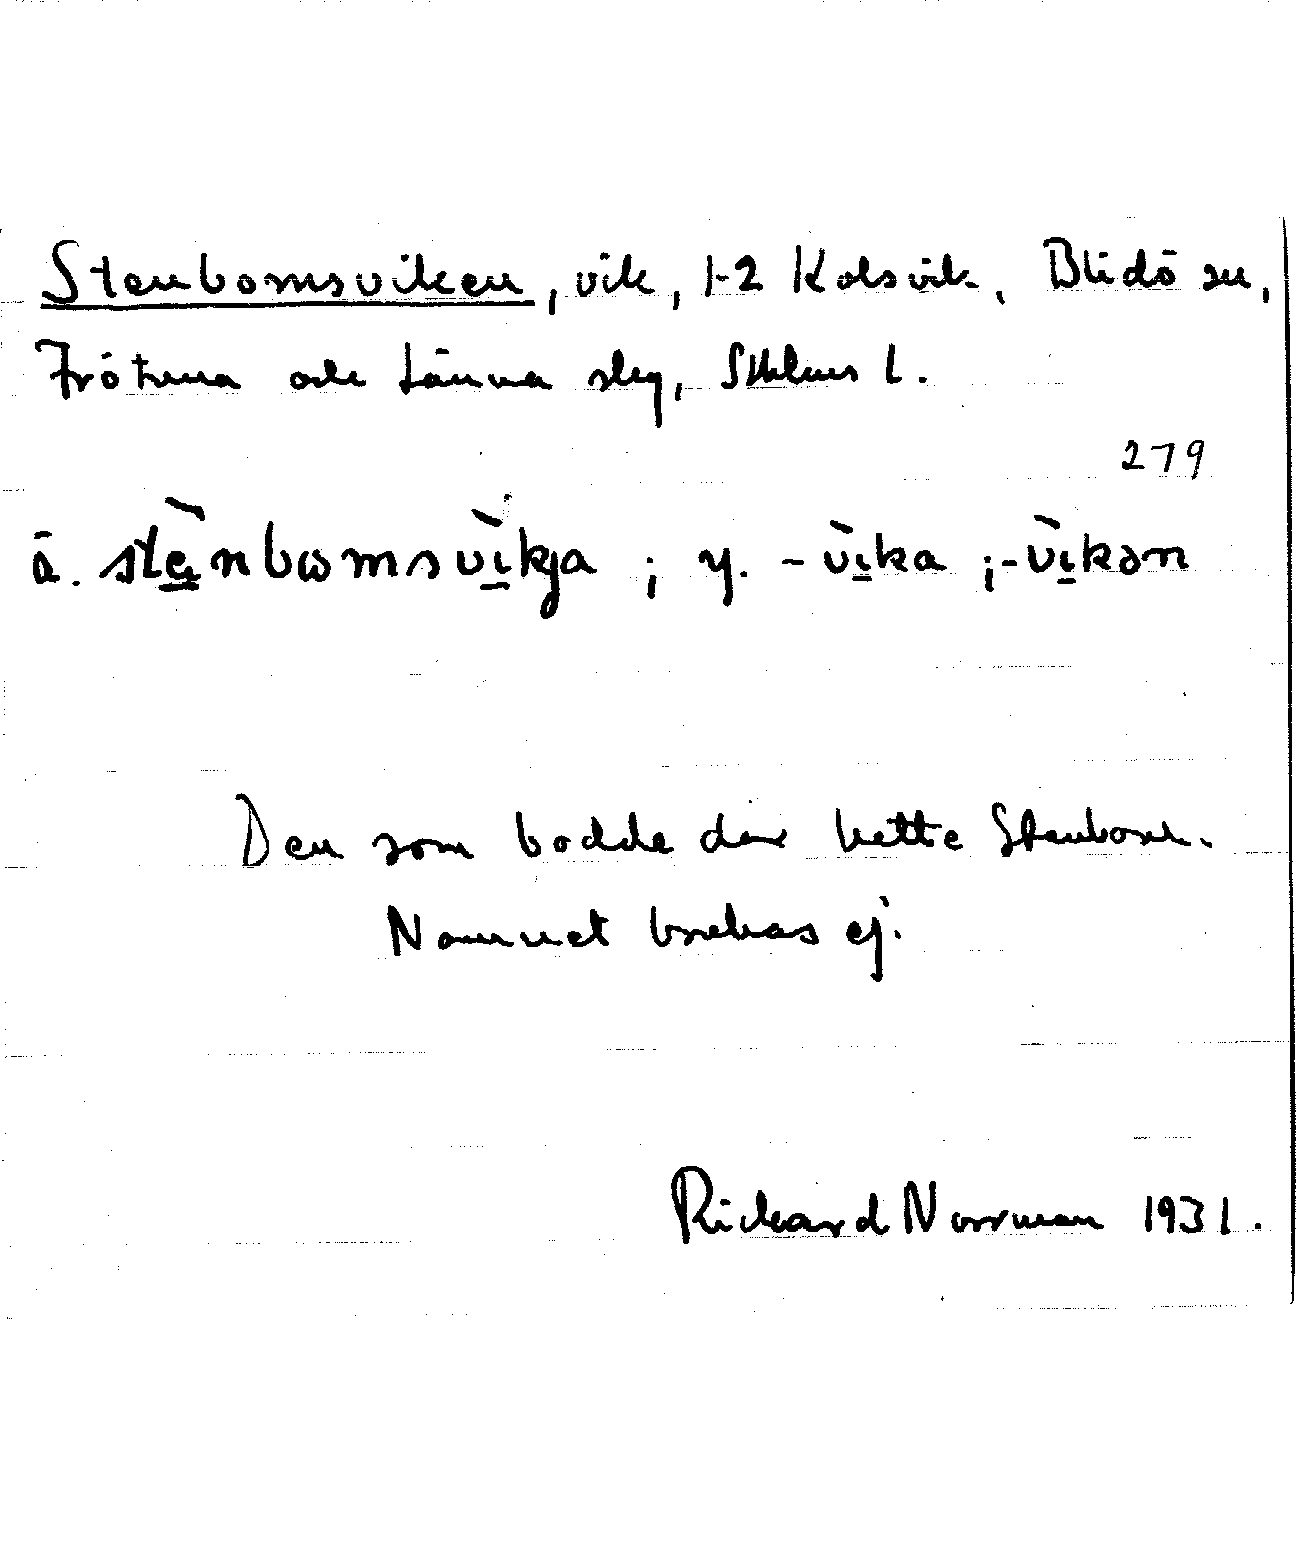 Stenbomsviken, vik, 1-2 Kolsvik, Blidö sn,
Frötuna och Länna slg, Sthlms l.
279
ä. stè̱nbωmsvì̱kja ; y. -vì̱ka ; -vì̱kən
Den som bodde där hette Stenbom.
Namnet brukas ej.
Rickard Norrman 1931.